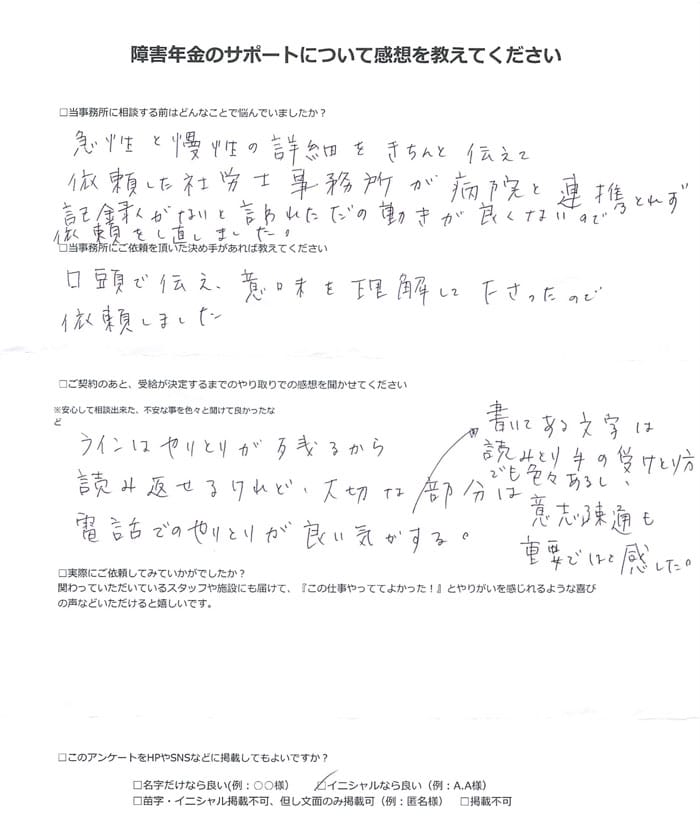 障害年金のサポートについて感想を教えてください
□当事務所に相談する前はどんなことで悩んでいましたか？
急性と慢性の詳細をきちんと伝えて
依頼した社労士事務所が病院と連携とれず
記録がないと言われたための動きが良くないので
依頼をし直しました。
□当事務所にご依頼を頂いた決め手があれば教えてください
口頭で伝え、意味を理解して下さったので
依頼しました
□ご契約のあと、受給が決定するまでのやり取りでの感想を聞かせてください
※安心して相談出来た、不安な事を色々と聞けて良かったな
ど
ラインはやりとりが残るから
読み返せるけれど、大切な部分は
電話でのやりとりが良い気がする。
書いてある文字は
読みとり手の受けとり方
でも色々あるし、
意志疎通も
重要ではと感じた。
□実際にご依頼してみていかがでしたか？
関わっていただいているスタッフや施設にも届けて、『この仕事やっててよかった！』とやりがいを感じれるような喜び
の声などいただけると嬉しいです。
□このアンケートをHPやSNSなどに掲載してもよいですか？
□名字だけなら良い(例：〇〇様） □イニシャルなら良い（例：A.A様）
□苗字・イニシャル掲載不可、但し文面のみ掲載可（例：匿名様） □掲載不可